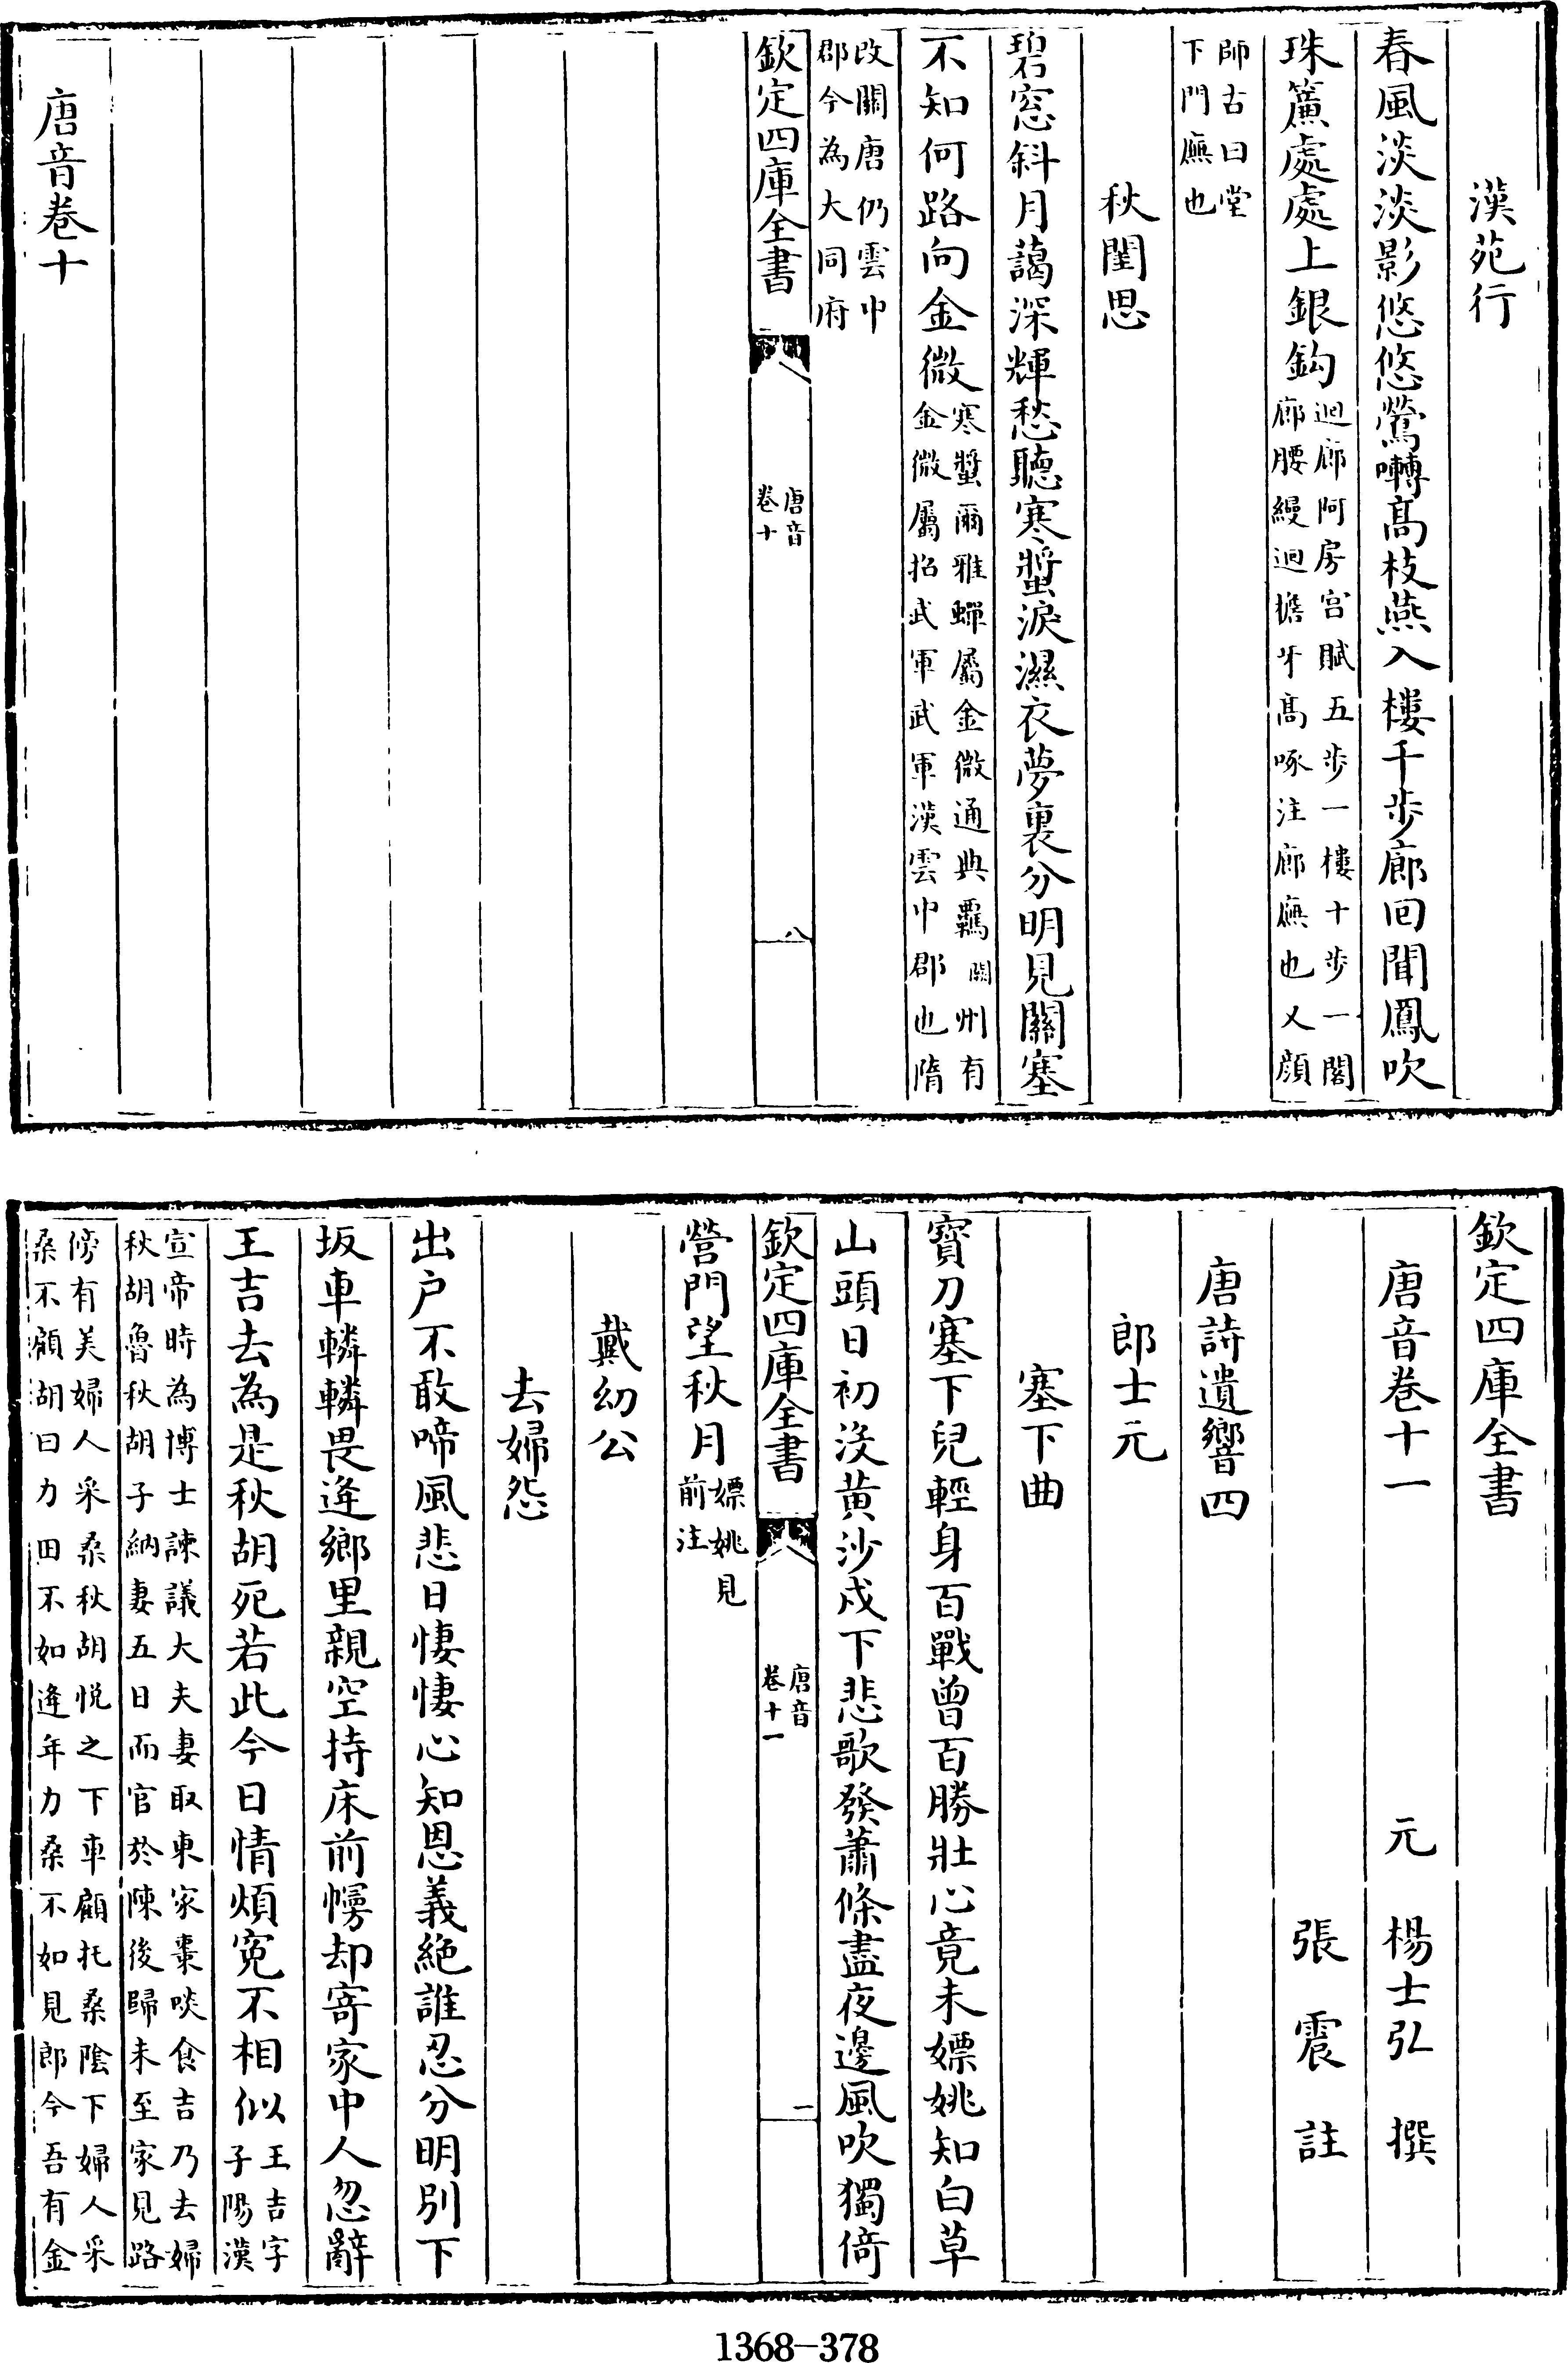 漢苑行
春風淡淡影悠悠鶯囀髙枝燕入樓千步廊回聞鳳吹
珠簾處處上銀鈎
迴廊阿房宫賦五步一樓十步一閣
廊腰縵迴檐牙髙啄注廊廡也乂顔
師古曰堂
下門廡也
秋閨思
碧窓斜月藹深輝愁聽寒螿淚濕衣夢裏分明見關塞
不知何路向金微
寒螿爾雅蟬屬金微通典羈闗州有
金微屬招武軍武軍漢雲中郡也隋
改闗唐仍雲中
郡今為大同府
欽定四庫全書
唐音
卷十
八
唐音卷十
欽定四庫全書
唐音卷十一
元 楊士弘 撰
張震註
唐詩遺響四
郎士元
塞下曲
寳刀塞下兒輕身百戰曾百勝壯心竟未嫖姚知白草
山頭日初没黄沙戍下悲歌發蕭條盡夜邊風吹獨倚
欽定四庫全書
唐音
卷十一
一
營門望秋月
嫖姚見
前注
戴幼公
去婦怨
出户不敢啼風悲日悽悽心知恩義絶誰忍分明别下
坂車轔轔畏逢鄉里親空持床前幔却寄家中人忽辭
王吉去為是秋胡死若此今日情煩寃不相似
王吉字
子陽漢
宣帝時為博士諫議大夫妻取東家棗啖食吉乃去婦
秋胡魯秋胡子納妻五日而官於陳後歸未至家見路
傍有美婦人采桑秋胡悦之下車顧托桑陰下婦人采
桑不顧胡曰力田不如逢年力桑不如見郎今吾有金
1368—378